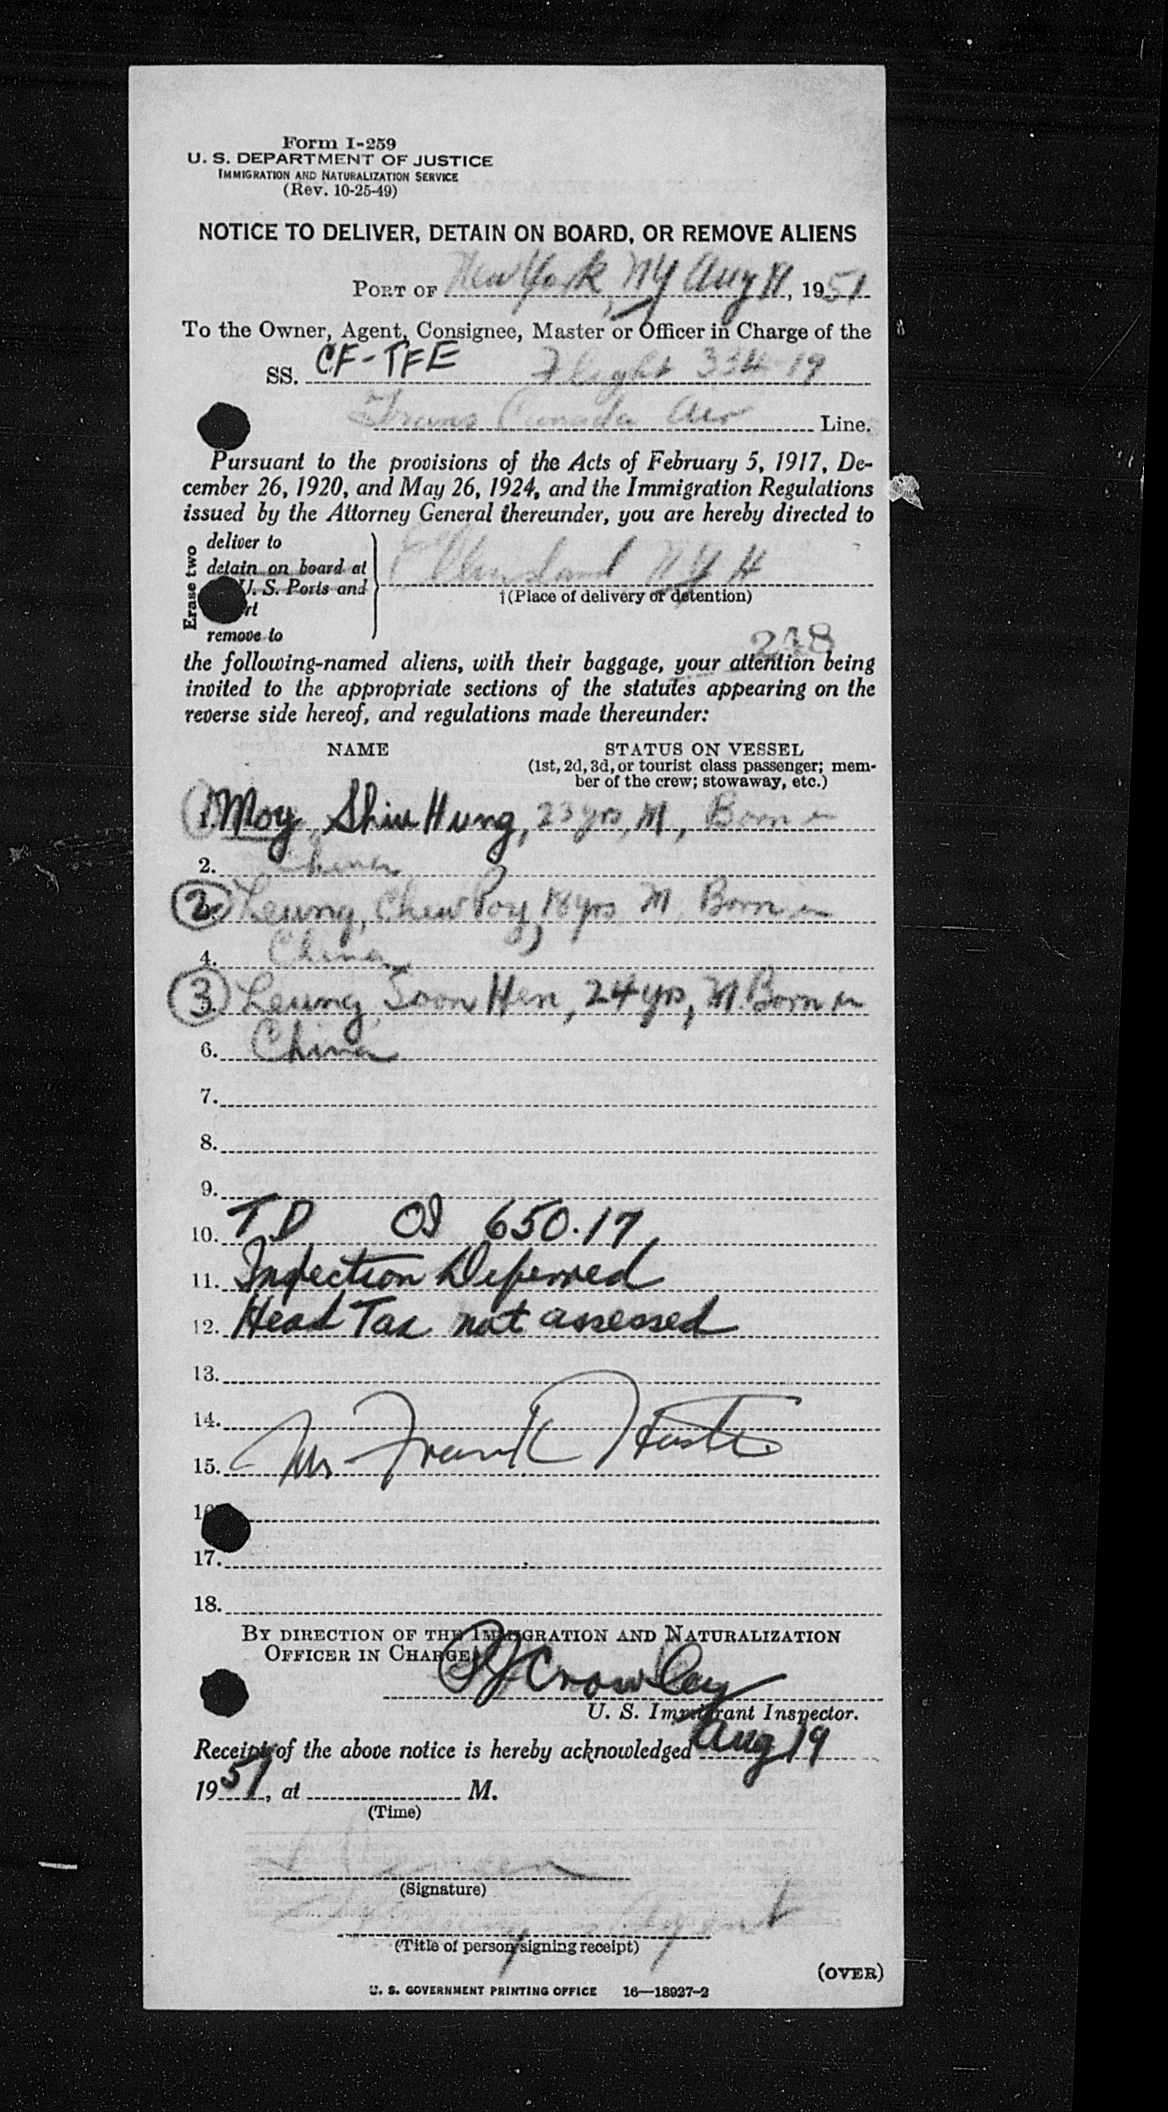 Form I-259
U. S. DEPARTMENT OF JUSTICE
IMMIGRATION AND NATURALIZATION SERVICE
(Rev. 10-25-49)
NOTICE TO DELIVER, DETAIN ON BOARD, OR REMOVE ALIENS
PORT OF New York, NY Aug 19, 1951
To the Owner, Agent, Consignee, Master or Officer in Charge of the
SS. CF-TFE Flight 334-19
Trans Canada Air Line.
Pursuant to the provisions of the Acts of February 5, 1917, De-
cember 26, 1920, and May 26, 1924, and the Immigration Regulations
issued by the Attorney General thereunder, you are hereby directed to
Erase two
deliver to
detain on board at
U. S. Ports and
remove to
Ellis Island NYH
†(Place of delivery or detention)
248
the following-named aliens, with their baggage, your attention being
invited to the appropriate sections of the statutes appearing on the
reverse side hereof, and regulations made thereunder:
NAME STATUS ON VESSEL
(1st, 2d, 3d, or tourist class passenger; mem-
ber of the crew; stowaway, etc.)
1. Moy, Shiu Hung, 23 yrs, M, Born in
2. China
2 Leung, Chew Poy, 18 yrs M, Born in
4. China
3 Leung Soon Hen, 24 yrs, M. Born in
6. China
7.
8.
9.
10. T.D OI 650.17
11. Inspection Deferred
12. Head Tax not assessed
13.
14.
15. Mr Frank
16
17.
18.
BY DIRECTION OF THE IMMIGRATION AND NATURALIZATION
OFFICER IN CHARGE:
PJ Crowley
U. S. Immigrant Inspector.
Receipt of the above notice is hereby acknowledged Aug 19
1951, at M.
(Time)
(Signature)
Agent
(Title of person signing receipt)
(OVER)
U. S. GOVERNMENT PRINTING OFFICE 16—18927-2